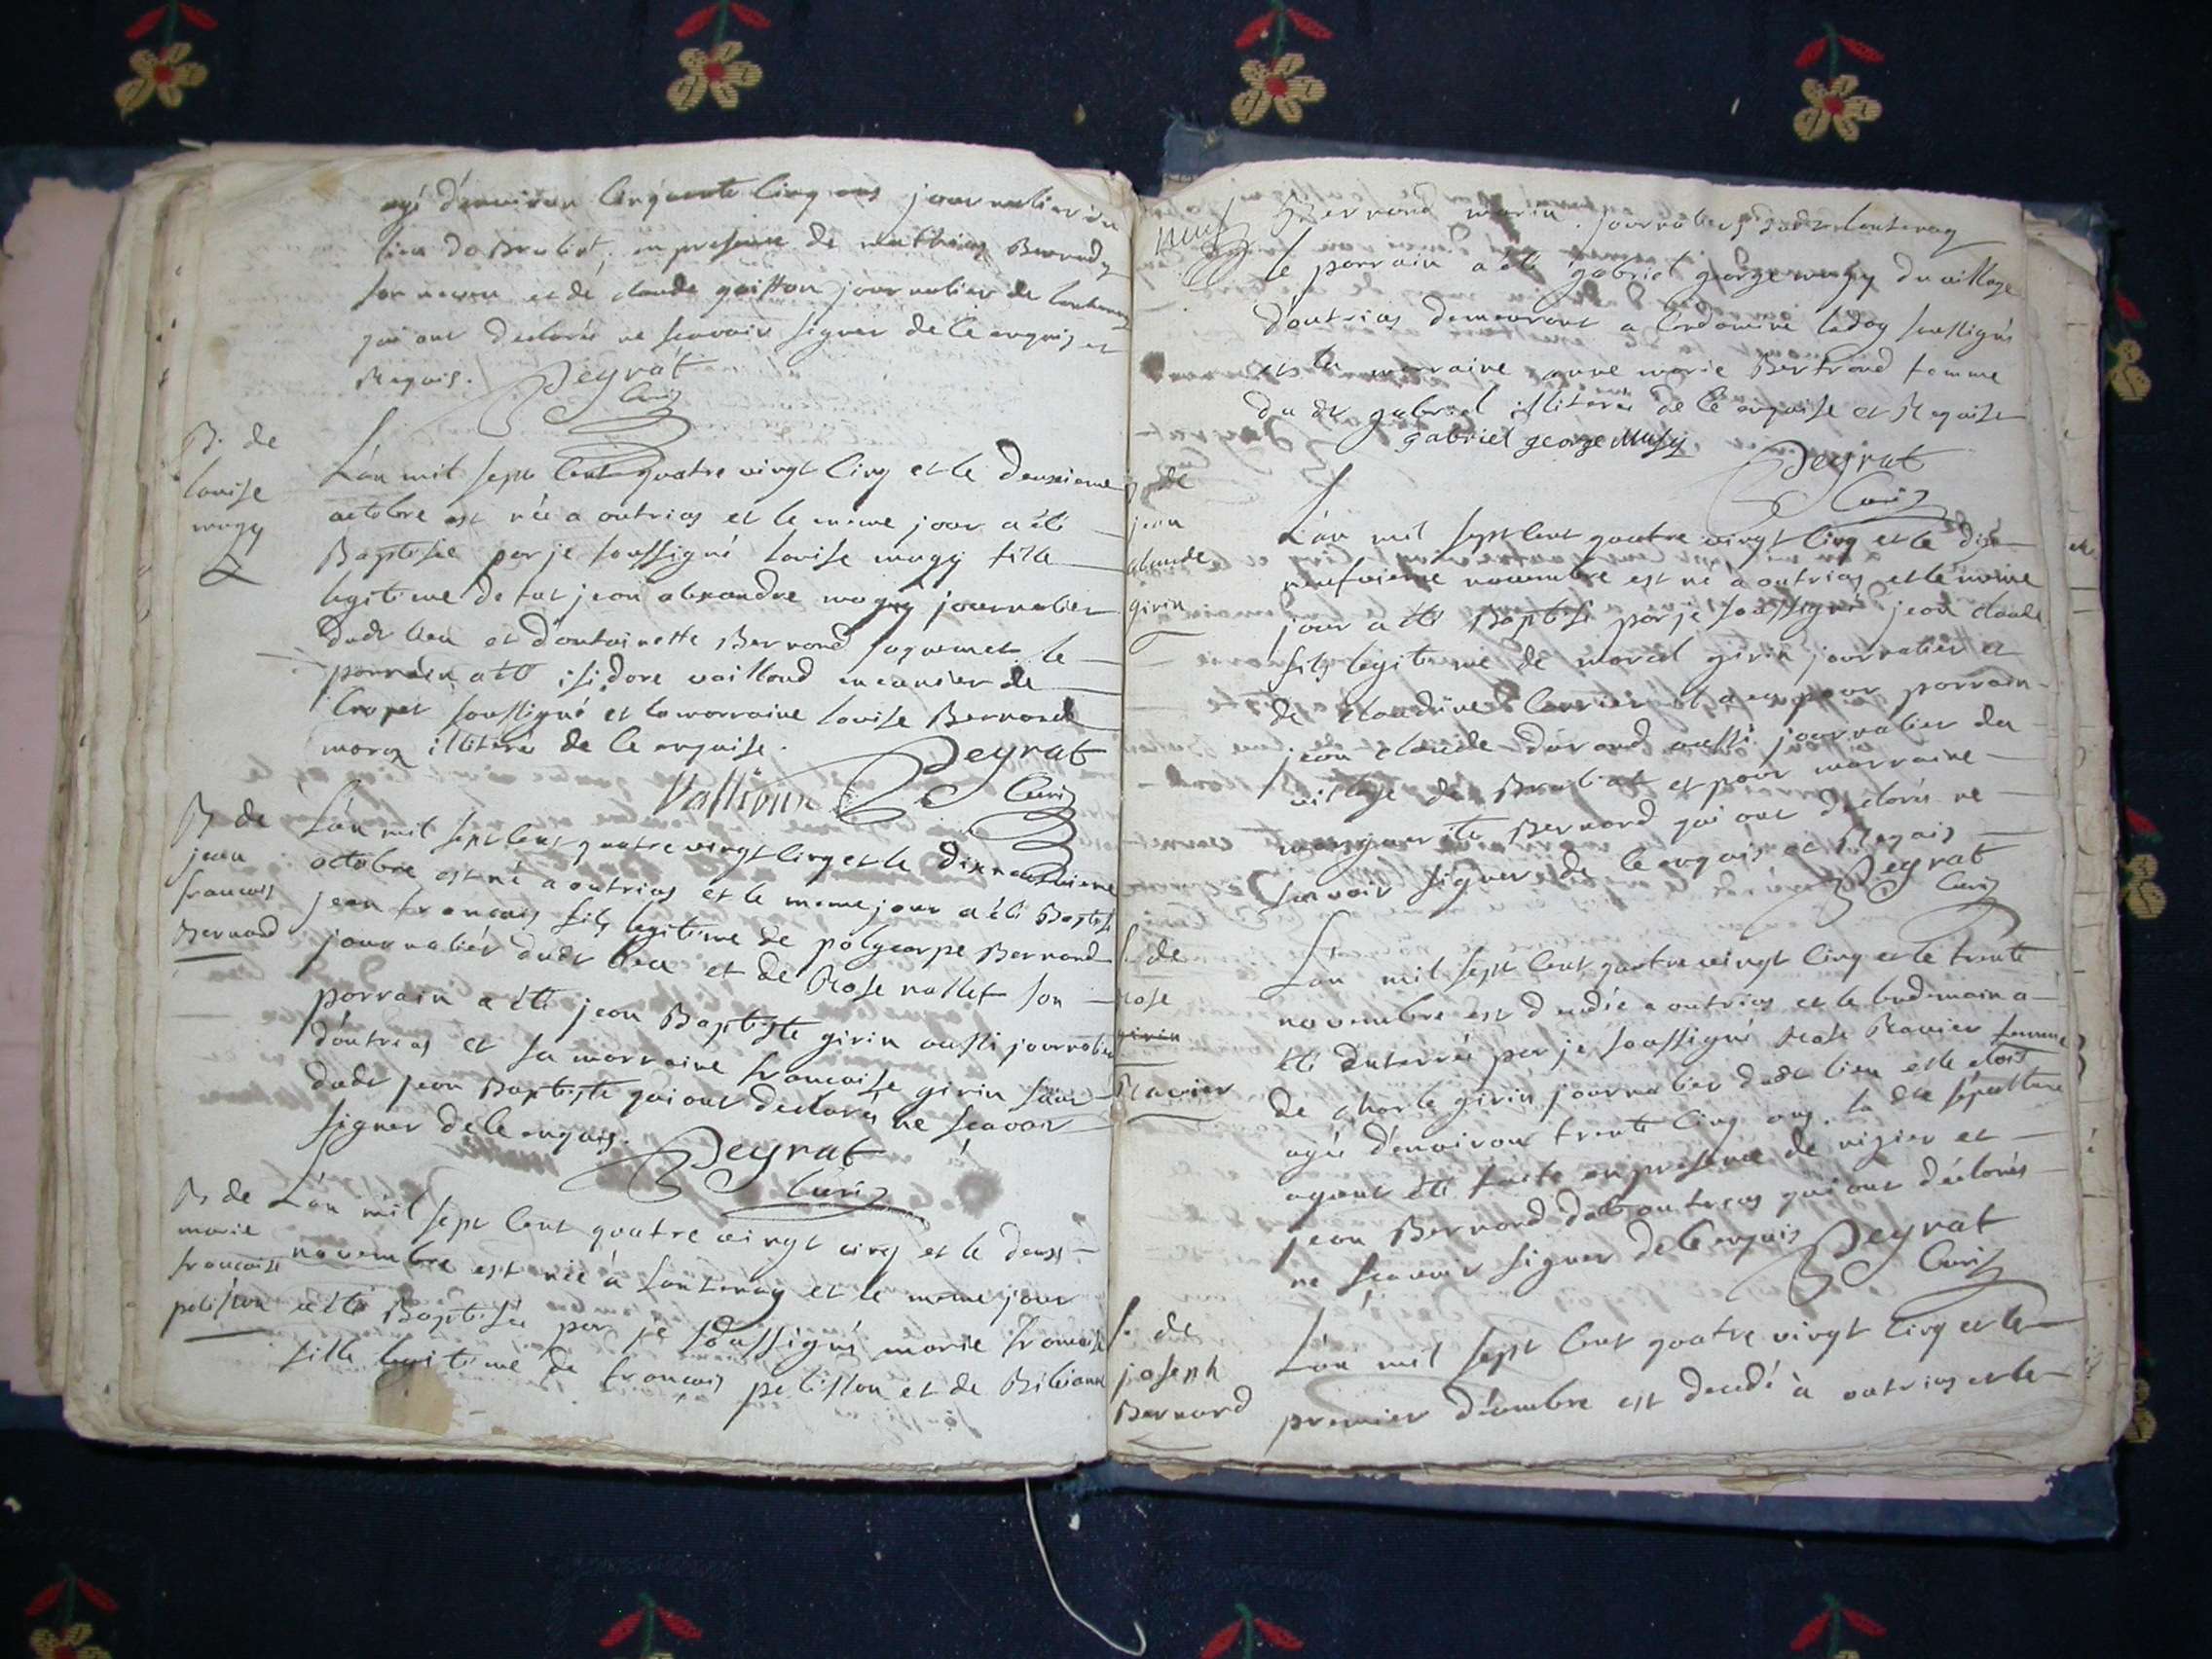 agé d'environ Cinquante Cinq ans journalier du
lieu de Brabiat, en presence de mathieu Bernard
son neveu et de claude journalier de Lantenay
qui ont declarés ne scavoir signer de ce enquis et
Requis. Peyrat
Curé
B. de
louise
mugy
L'an mil sept Cent quatre vingt Cinq et le Deuxieme
octobre est née a outrias et le meme jour a été
Baptisée par je soussigné louise mugy fille
legitime de fut jean alexandre mugy journalier
dudt lieu et d'antoinette Bernand le
parrain a été isidore vailloud meunier de
soussigné et la marraine louise Bernand
illiterée de Ce enquise.
Peyrat
Curé
B de
jean
francois
Bernand
L'an mil sept Cent quatre vingt Cinq et le dix neuvieme
octobre est né a outrias et le meme jour a été Baptisé
jean francois fils legitime de polycarpe Bernand
journalier dudt lieu et de Rose nallet son
parrain a été jean Baptiste girin aussi journalier
d'outrias et sa marraine francoise girin sœur
dudt jean Baptiste qui ont declarés ne scavoir
signer de Ce enquis.
Peyrat
Curé
B de
marie
francoise
pelisson
L'an mil sept Cent quatre vingt cinq et le deux
novembre est née à Lantenay et le meme jour
a été Baptisée par je soussigné marie francoise
fille legitime de francois pelisson et de Bibianne
Bernand journaliers dudt Lantenay
le parrain a été gabriel george mugy du village
d'outrias demeurant a soussigné
et la marraine anne marie Bertrand femme
du dt gabriel illiterée de Ce enquise et Requise
gabriel george Mugy
Peyrat
Curé
B de
jean
claude
girin
L'an mil sept Cent quatre vingt Cinq et le dix
neufvieme novembre est né a outrias et le meme
jour a été Baptisé par je soussigné jean claude
fils legitime de marcel girin journalier et
de claudine Carrier il a eu pour parrain
jean claude durand aussi journalier du
village de Brabiat et pour marraine
marguerite Bernard qui ont declarés ne
scavoir signer de Ce enquis et Requis
Peyrat
Curé
S. de
rose
girin
Ravier
L'an mil sept Cent quatre vingt Cinq et le trente
novembre est decedée a outrias et le lendemain a
été enterrée par je soussigné rose Ravier femme
de charle girin journalier dudt lieu elle étoit
agée d'environ trente Cinq ans. la dte sépulture
ayant été faite en presence de nizier et
jean Bernard d'outrias qui ont déclarés
ne scavoir signer de Ce enquis
Peyrat
Curé
S. de
joseph
Bernard
L'an mil sept Cent quatre vingt Cinq et le
premier décembre est decedé à outrias et le